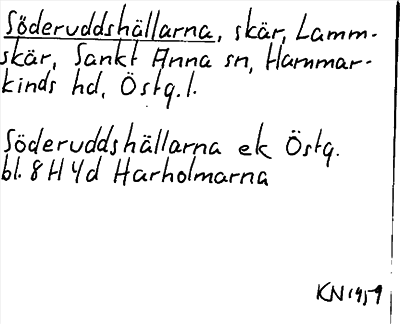 Söderuddshällarna, skär, Lamm-
skär, Sankt Anna sn, Hammar-
kinds hd, Östg. l.
Söderuddshällarna ek Östg.
bl. 8 H 4d Harholmarna
KN 1959